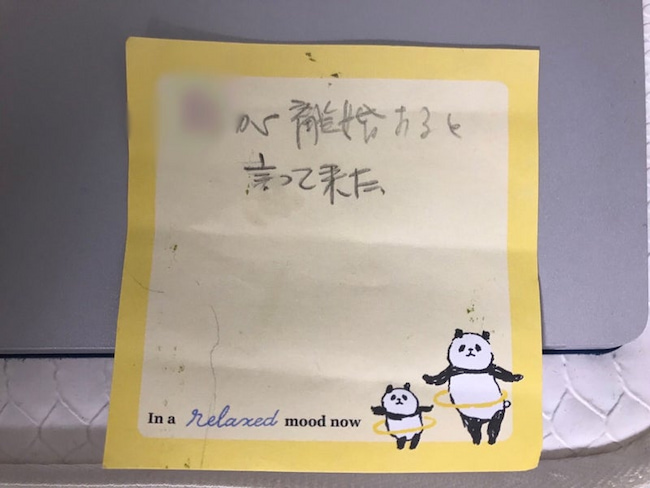 が離婚すると
言って来た、
In a relaxed mood now